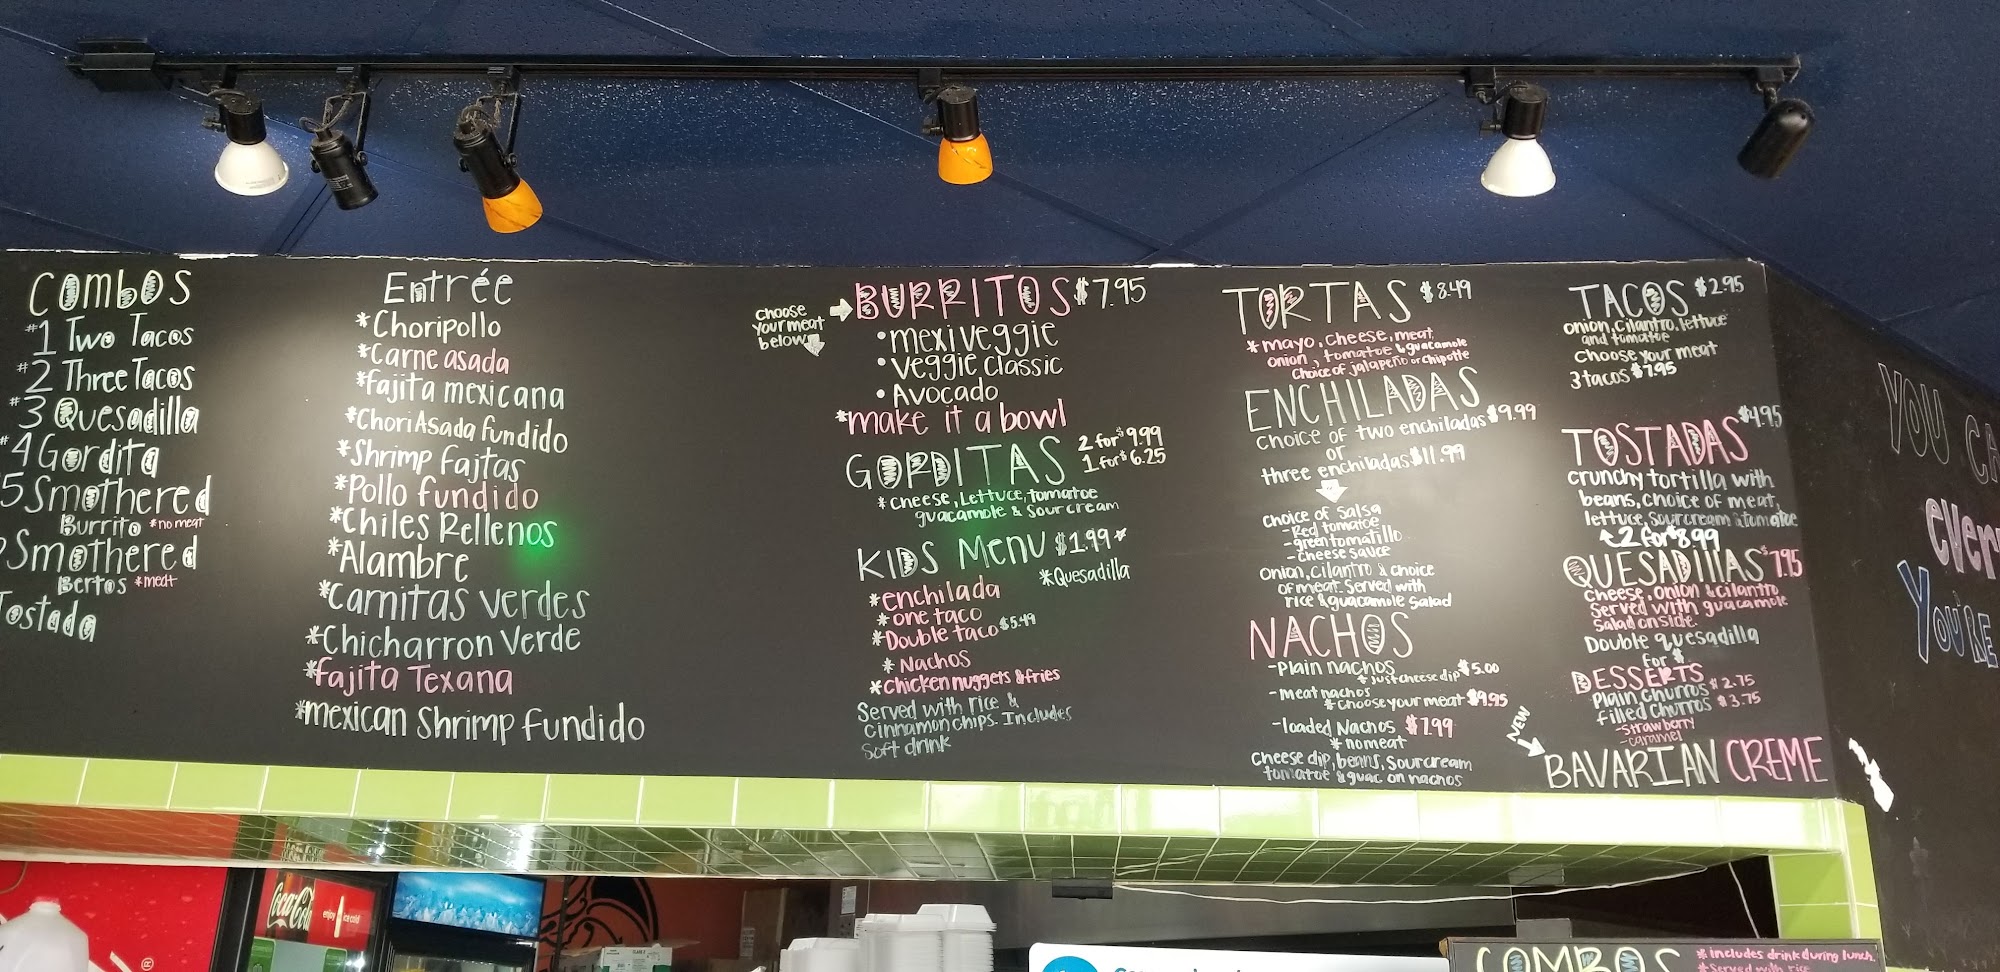 Combos
#1 Two Tacos
#2 Three Tacos
#3 Quesadilla
#4 Gordita
5 Smothered
Burrito *no meat
Smothered
Bertos *meat
Tostada
Entrée
*Choripollo
*Carne asada
*fajita mexicana
*ChoriAsada fundido
*Shrimp fajtas
*Pollo fundido
*Chiles Rellenos
*Alambre
*Carnitas verdes
*Chicharron Verde
*fajita Texana
*mexican Shrimp fundido
choose
your meat
below
BURRITOS $7.95
• mexiveggie
• veggie classic
• Avocado
*make it a bowl
GORDITAS 2 for $9.99
1 for $6.25
*cheese, Lettuce, tomatoe
guacamole & Sour cream
KIDS Menu $1.99*
*Quesadilla
*enchilada
*one taco
*Double taco $5.49
*Nachos
*chicken nuggets & fries
Served with rice &
cinnamon chips. Includes
Soft drink
TORTAS $8.49
*mayo, cheese, meat
onion, tomatoe & guacamole
Choice of jalapeño or chipotle
ENCHILADAS
choice of two enchiladas $9.99
or
three enchiladas $11.99
choice of salsa
-Red tomatoe
-green tomatillo
-cheese sauce
onion, cilantro & choice
of meat. Served with
rice & guacamole Salad
NACHOS
-Plain nachos $5.00
*just cheese dip
-meat nachos
*choose your meat $9.95
-loaded Nachos $7.99
*no meat
Cheese dip, beans, Sourcream
tomatoe & guac on nachos
TACOS $2.95
onion, cilantro, lettuce
and tomatoe
choose your meat
3 tacos $7.95
$4.95
TOSTADAS
crunchy tortilla with
beans, choice of meat,
lettuce, Sourcream & tomatoe
2 for $8.99
QUESADIllAS $7.95
Cheese, onion & cilantro
Served with guacamole
Salad on side.
Double quesadilla
for $
DESSERTS
Plain Churros $2.75
filled churros $3.75
-strawberry
-caramel
NEW
BAVARIAN CREME
YOU CA
every
YOU'RE
Coca-Cola
enjoy ice cold
COMBOS
*includes drink during lunch.
*Served with rice